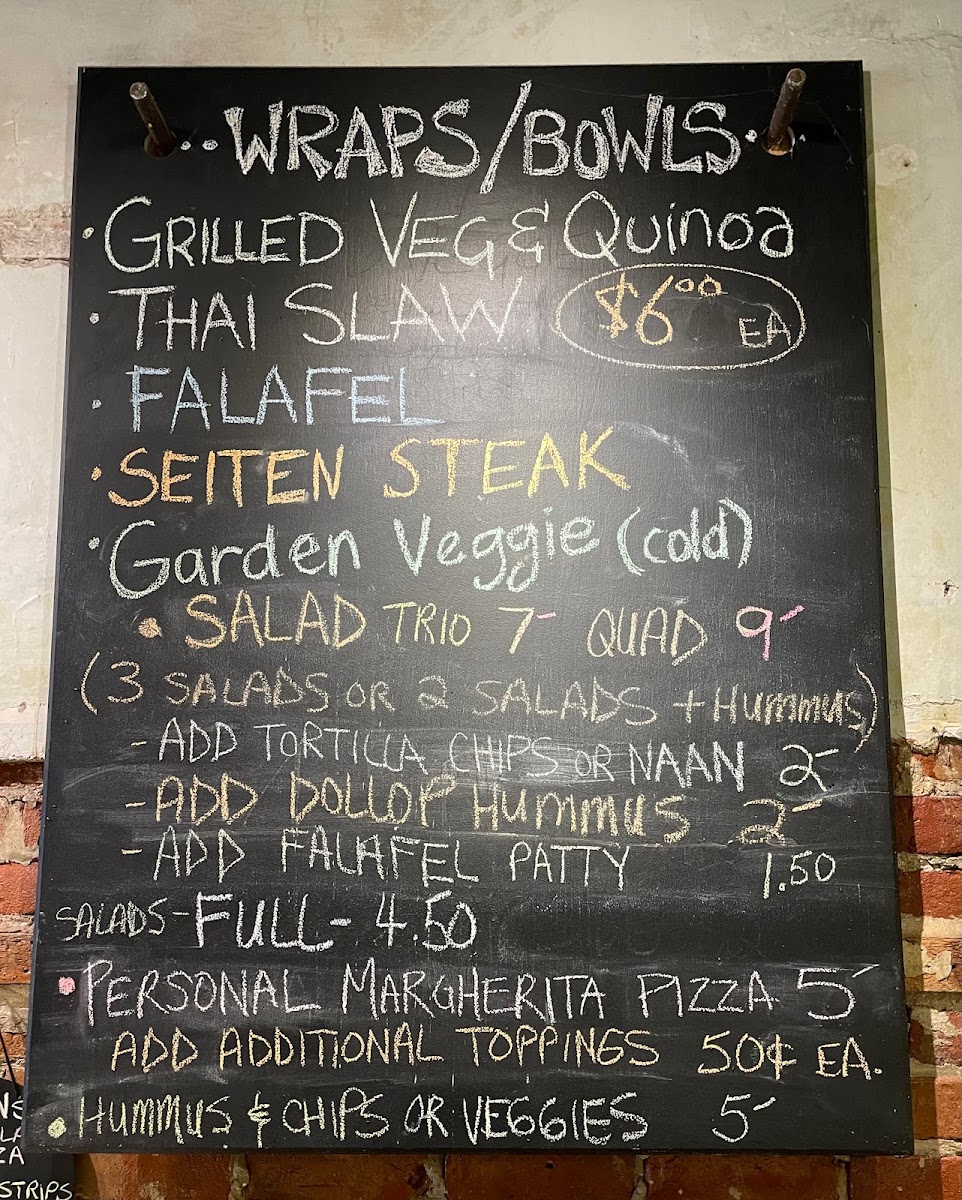 ··WRAPS/BOWLS·
· GRILLED VEG & Quinoa
· THAI SLAW $6⁰⁰ EA
· FALAFEL
· SEITEN STEAK
· Garden Veggie (cold)
• SALAD TRIO 7- QUAD 9-
(3 SALADS OR 2 SALADS + Hummus)
- ADD TORTILLA CHIPS OR NAAN 2-
- ADD DOLLOP HUMMUS 2-
- ADD FALAFEL PATTY 1.50
SALADS - FULL - 4.50
• PERSONAL MARGHERITA PIZZA 5-
ADD ADDITIONAL TOPPINGS 50¢ EA.
• HUMMUS & CHIPS OR VEGGIES 5-
STRIPS